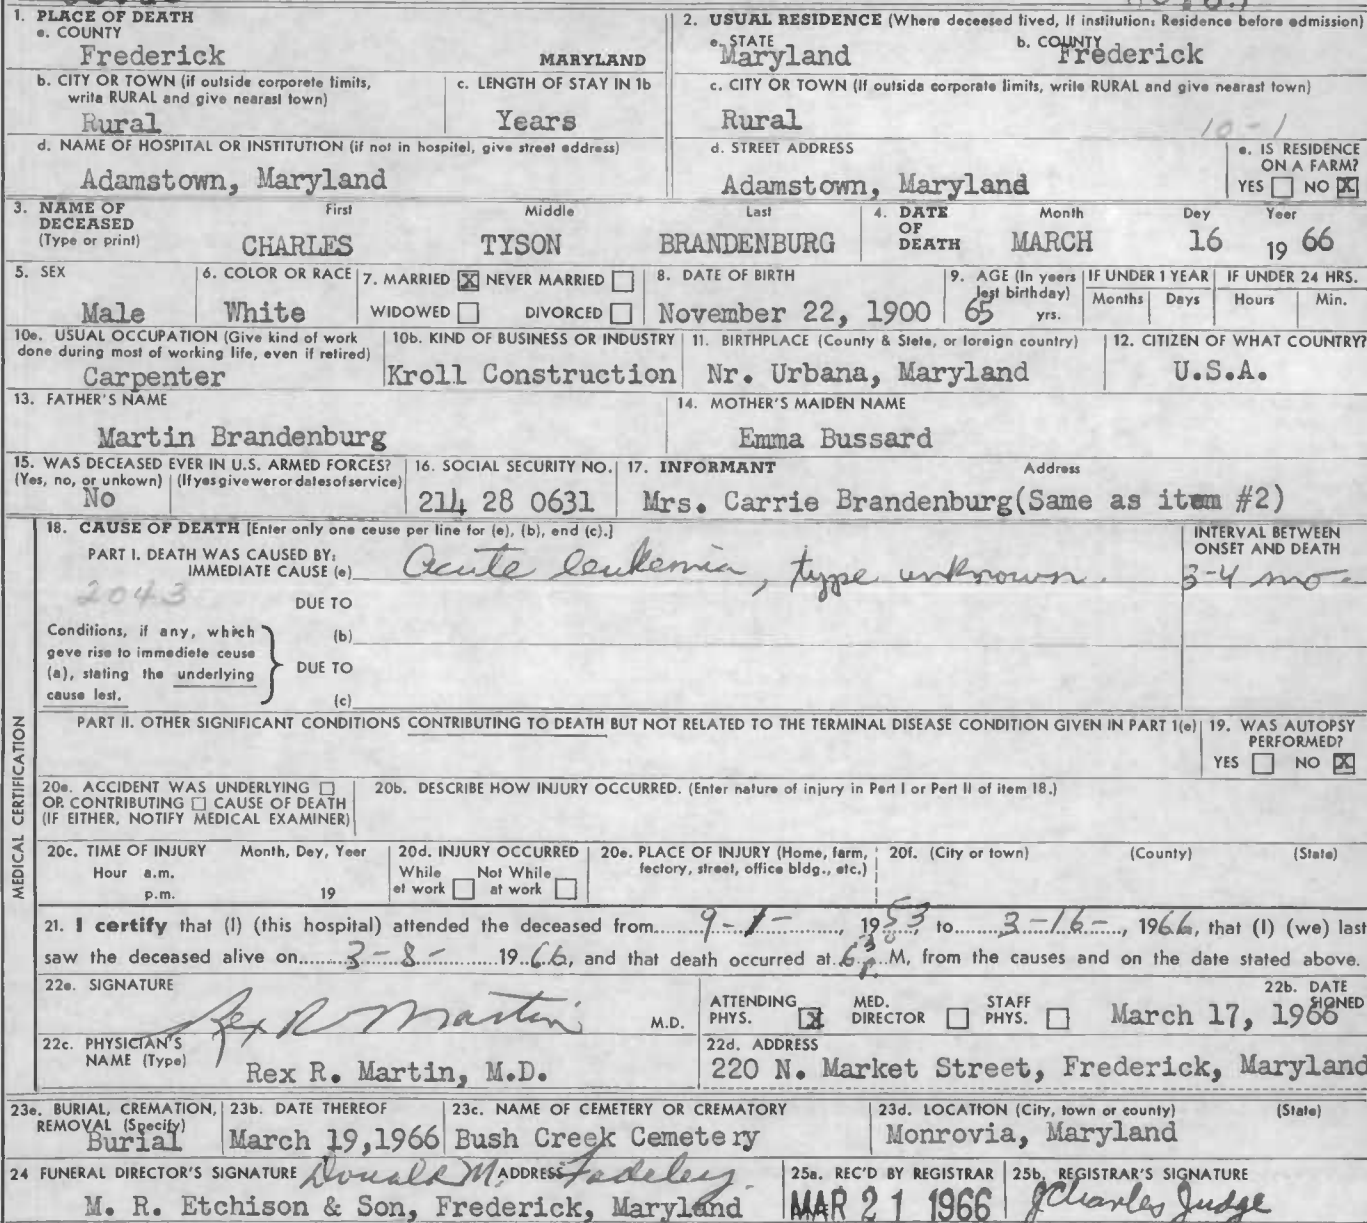 1. PLACE OF DEATH
a. COUNTY
Frederick MARYLAND
2. USUAL RESIDENCE (Where deceased lived, If institution: Residence before admission)
a. STATE b. COUNTY
Maryland Frederick
b. CITY OR TOWN (if outside corporate limits, write RURAL and give nearest town)
Rural
c. LENGTH OF STAY IN 1b
Years
c. CITY OR TOWN (If outside corporate limits, write RURAL and give nearest town)
Rural
10-1
d. NAME OF HOSPITAL OR INSTITUTION (if not in hospital, give street address)
Adamstown, Maryland
d. STREET ADDRESS
Adamstown, Maryland
e. IS RESIDENCE ON A FARM?
YES ☐ NO ☒
3. NAME OF DECEASED (Type or print)
First Middle Last
CHARLES TYSON BRANDENBURG
4. DATE OF DEATH
Month Day Year
MARCH 16 19 66
5. SEX
Male
6. COLOR OR RACE
White
7. MARRIED ☒ NEVER MARRIED ☐
WIDOWED ☐ DIVORCED ☐
8. DATE OF BIRTH
November 22, 1900
9. AGE (In years last birthday)
65 yrs.
IF UNDER 1 YEAR
Months Days
IF UNDER 24 HRS.
Hours Min.
10a. USUAL OCCUPATION (Give kind of work done during most of working life, even if retired)
Carpenter
10b. KIND OF BUSINESS OR INDUSTRY
Kroll Construction
11. BIRTHPLACE (County & State, or foreign country)
Nr. Urbana, Maryland
12. CITIZEN OF WHAT COUNTRY?
U.S.A.
13. FATHER'S NAME
Martin Brandenburg
14. MOTHER'S MAIDEN NAME
Emma Bussard
15. WAS DECEASED EVER IN U.S. ARMED FORCES?
(Yes, no, or unkown) (If yes give wer or dates of service)
No
16. SOCIAL SECURITY NO.
214 28 0631
17. INFORMANT Address
Mrs. Carrie Brandenburg(Same as item #2)
MEDICAL CERTIFICATION
18. CAUSE OF DEATH [Enter only one cause per line for (a), (b), and (c).]
PART I. DEATH WAS CAUSED BY:
IMMEDIATE CAUSE (a) Acute leukemia, type unknown.
INTERVAL BETWEEN ONSET AND DEATH
3-4 mo-
2043
DUE TO
Conditions, if any, which gave rise to immediate cause (a), stating the underlying cause last.
(b)
DUE TO
(c)
PART II. OTHER SIGNIFICANT CONDITIONS CONTRIBUTING TO DEATH BUT NOT RELATED TO THE TERMINAL DISEASE CONDITION GIVEN IN PART 1(a)
19. WAS AUTOPSY PERFORMED?
YES ☐ NO ☒
20a. ACCIDENT WAS UNDERLYING ☐
OR CONTRIBUTING ☐ CAUSE OF DEATH
(IF EITHER, NOTIFY MEDICAL EXAMINER)
20b. DESCRIBE HOW INJURY OCCURRED. (Enter nature of injury in Part I or Part II of item 18.)
20c. TIME OF INJURY Month, Day, Year
Hour a.m.
p.m. 19
20d. INJURY OCCURRED
While at work ☐ Not While at work ☐
20e. PLACE OF INJURY (Home, farm, factory, street, office bldg., etc.)
20f. (City or town) (County) (State)
21. I certify that (I) (this hospital) attended the deceased from 9-1-, 1953, to 3-16-, 1966, that (I) (we) last
saw the deceased alive on 3-8- 1966, and that death occurred at 6 30 P.M, from the causes and on the date stated above.
22a. SIGNATURE
Rex R Martin M.D.
ATTENDING PHYS. ☒ MED. DIRECTOR ☐ STAFF PHYS. ☐
22b. DATE SIGNED
March 17, 1966
22c. PHYSICIAN'S NAME (Type)
Rex R. Martin, M.D.
22d. ADDRESS
220 N. Market Street, Frederick, Maryland
23a. BURIAL, CREMATION, REMOVAL (Specify)
Burial
23b. DATE THEREOF
March 19,1966
23c. NAME OF CEMETERY OR CREMATORY
Bush Creek Cemetery
23d. LOCATION (City, town or county) (State)
Monrovia, Maryland
24 FUNERAL DIRECTOR'S SIGNATURE ADDRESS
Donald M. Fadeley.
M. R. Etchison & Son, Frederick, Maryland
25a. REC'D BY REGISTRAR
MAR 21 1966
25b. REGISTRAR'S SIGNATURE
J Charles Judge